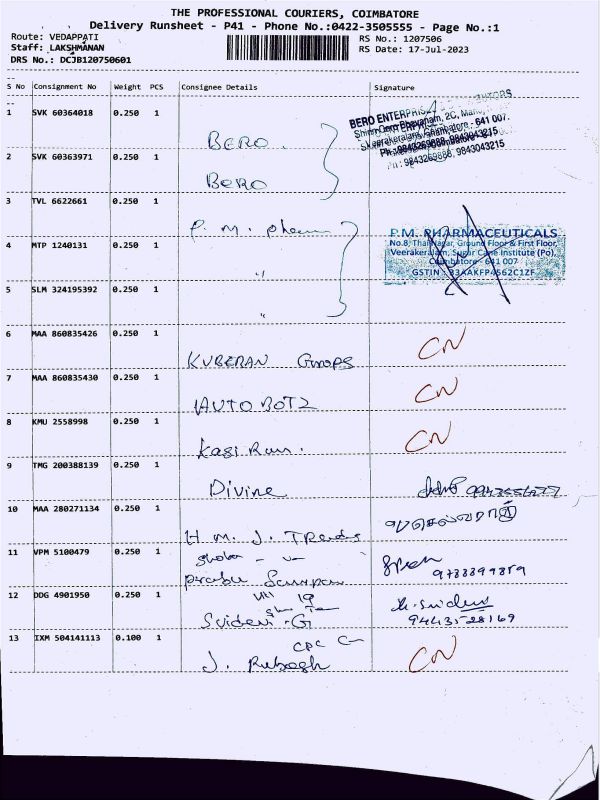 THE PROFESSIONAL COURIERS, COIMBATORE
Delivery Runsheet - P41 - Phone No.:0422-3505555 - Page No.:1
Route: VEDAPPATI
RS No.: 1207506
Staff: LAKSHMANAN
RS Date: 17-Jul-2023
DRS No.: DCJB120750601
S No Consignment No Weight PCS Consignee Details Signature
1 SVK 60364018 0.250 1 BERO
BERO ENTERPRISES
2C,
Coimbatore - 641 007.
Ph: 9843269888, 9843043215
2 SVK 60363971 0.250 1 BERO
3 TVL 6622661 0.250 1 P. M. pharm
P.M. PHARMACEUTICALS
No.8, Thai Nagar, Ground Floor & First Floor,
Veerakeralam, Sugar Cane Institute (Po),
Coimbatore - 641 007
GSTIN : 33AAKFP4562C1ZF
4 MTP 1240131 0.250 1 "
5 SLM 324195392 0.250 1 "
6 MAA 860835426 0.250 1 KUBERAN Groups CN
7 MAA 860835430 0.250 1 AUTO BOTZ CN
8 KMU 2558998 0.250 1 Kasi Ram. CN
9 TMG 200388139 0.250 1 Divine
10 MAA 280271134 0.250 1 H. M. J. Trends
11 VPM 5100479 0.250 1 prabu
9788899859
12 DDG 4901950 0.250 1 Sridevi .G
9443528169
13 IXM 504141113 0.100 1 J. CN